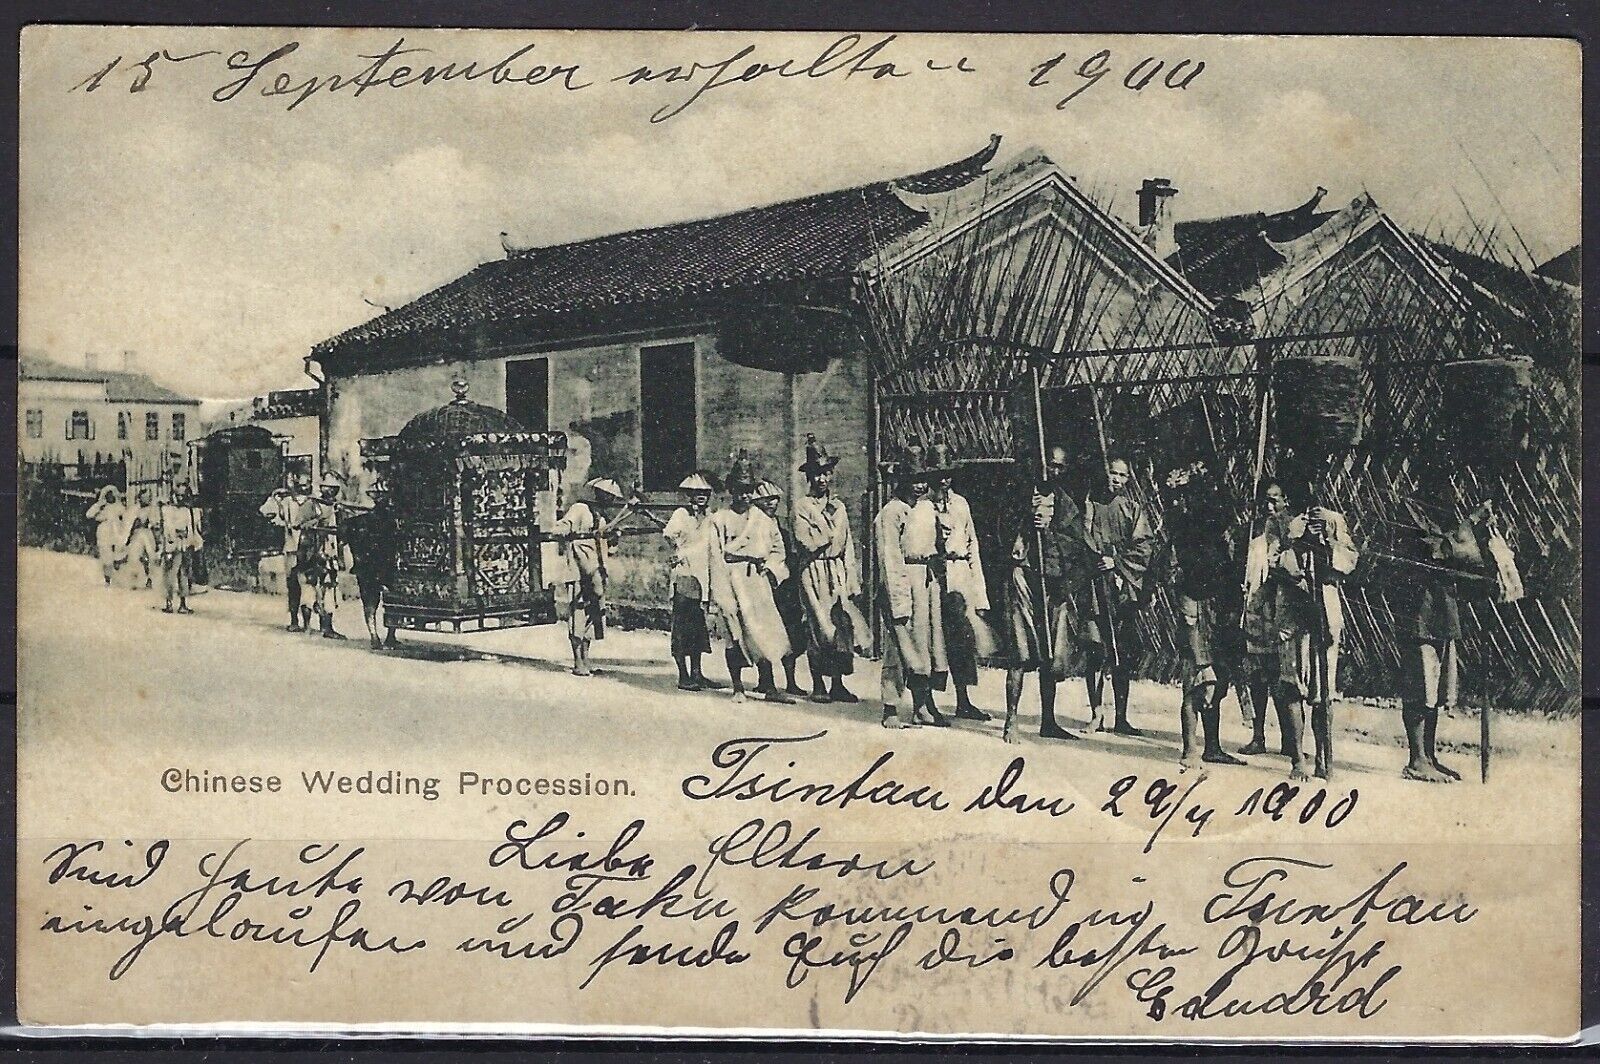 15 September erhalten 1900
Chinese Wedding Procession.
Tsintau den 29/4 1900
Liebe Eltern
Sind heute von Taku kommend in Tsintau
eingelaufen und sende Euch die besten Grüße
Eduard